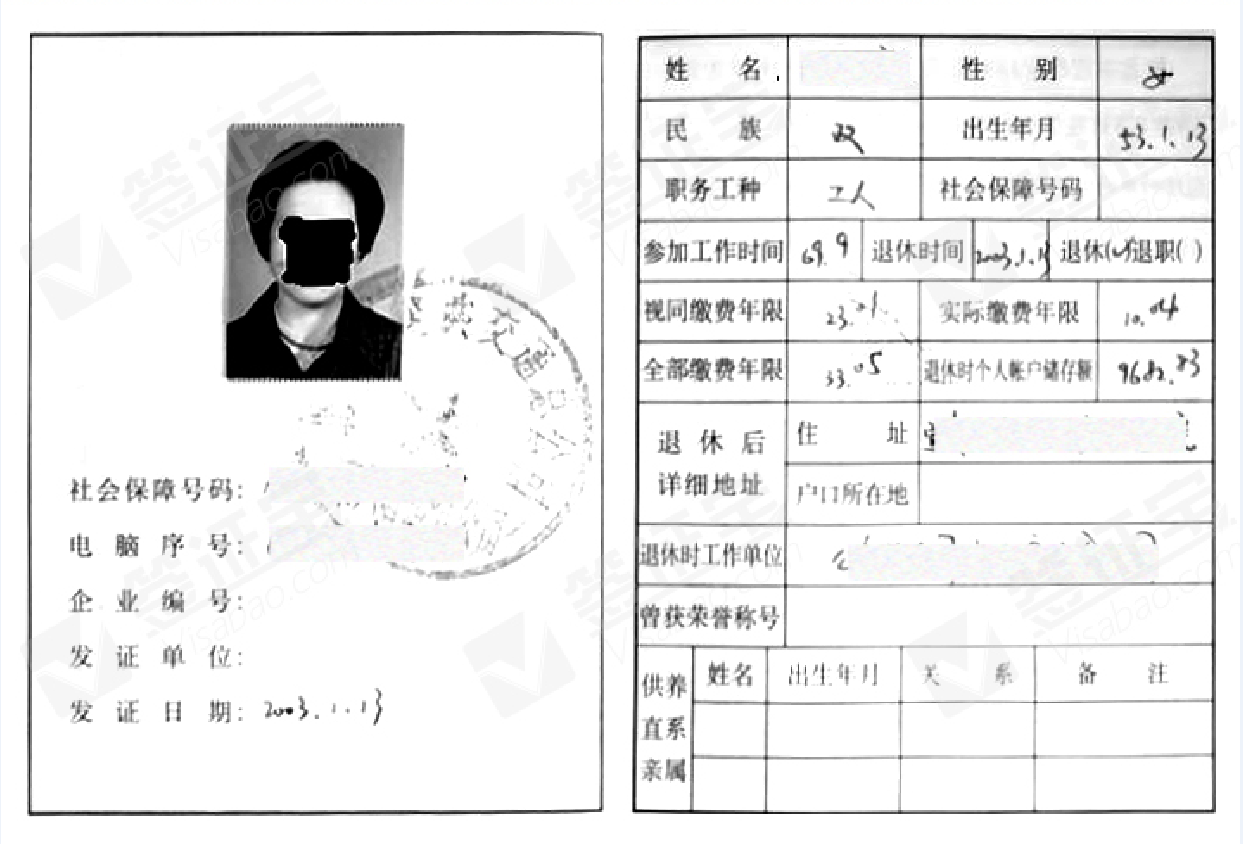 社会保障号码:
电脑序号:
企业编号:
发证单位:
发证日期: 2003.1.13
姓名 性别 女
民族 汉 出生年月 53.1.13
职务工种 工人 社会保障号码
参加工作时间 69.9 退休时间 2003.1.13 退休(✓)退职( )
视同缴费年限 23.01 实际缴费年限 10.04
全部缴费年限 33.05 退休时个人帐户储存额 9682.83
退休后详细地址 住址
户口所在地
退休时工作单位
曾获荣誉称号
供养直系亲属 姓名 出生年月 关系 备注
签证宝
Visabao.com